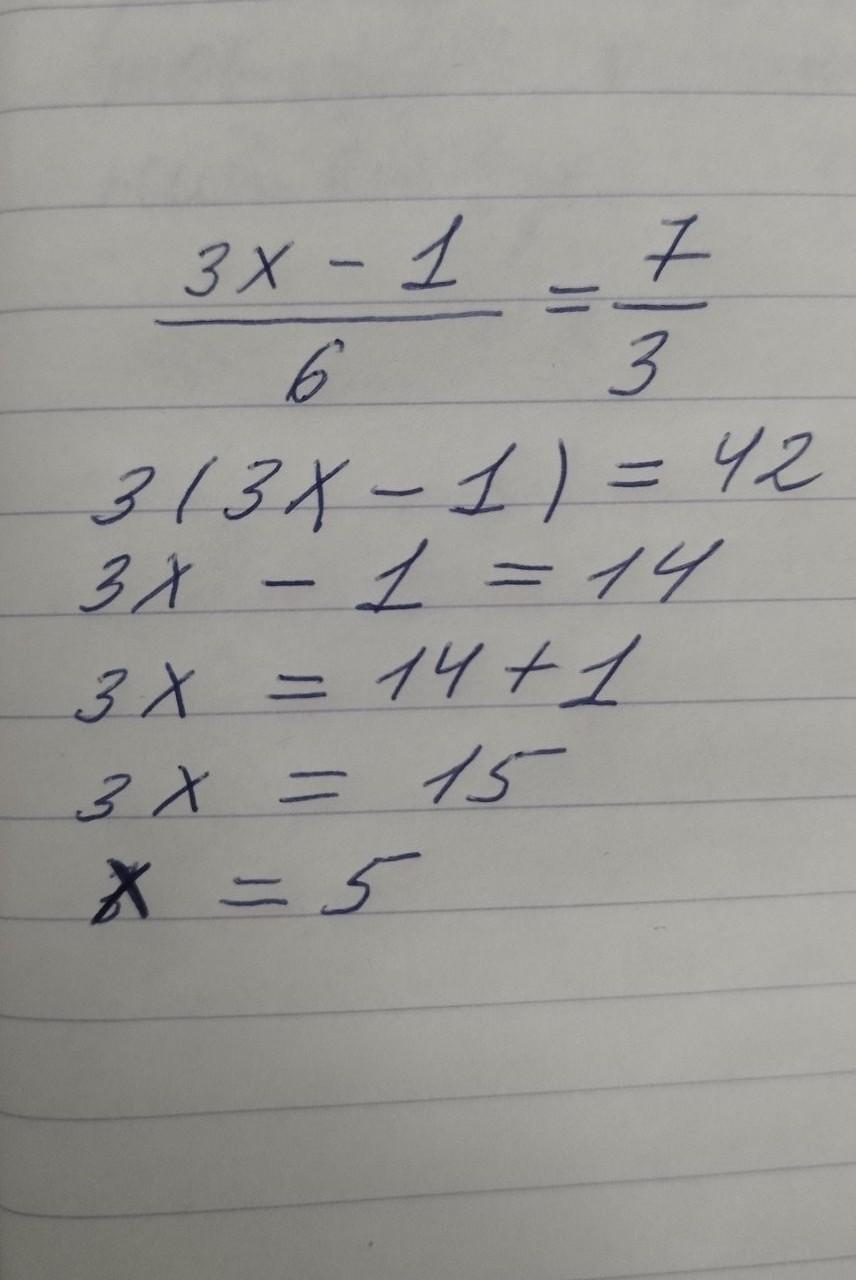 3x - 1 / 6 = 7 / 3
3(3x - 1) = 42
3x - 1 = 14
3x = 14 + 1
3x = 15
x = 5